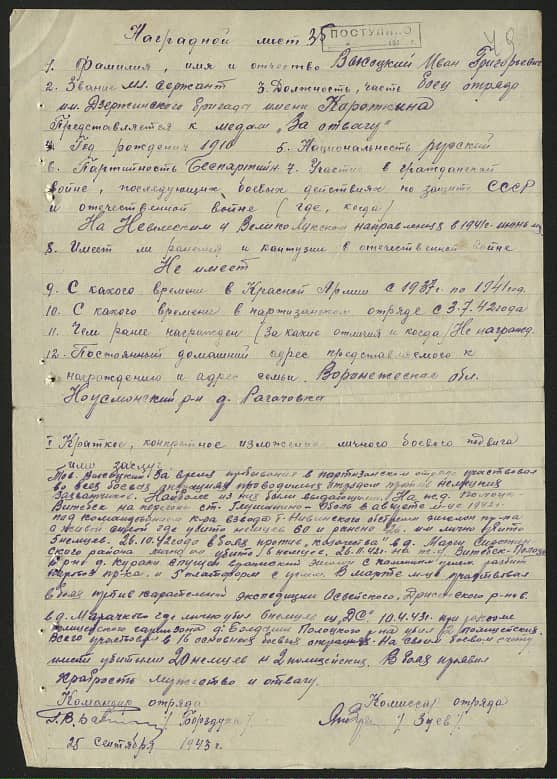 Наградной лист 35
ПОСТУПИЛО
49
1. Фамилия, имя и отчество Высоцкий Иван Григорьевич
2. Звание мл. сержант 3. Должность, часть боец отряда
им. Дзержинского бригада имени Короткина
Представляется к медали „За отвагу"
4. Год рождения 1910 5. Национальность русский
6. Партийность Беспартийн. 7. Участие в гражданской
войне, последующих боевых действиях по защите СССР
и отечественной войне (где, когда)
На Невельском и Великолукском направлениях в 1941г.
8. Имеет ли ранения и контузии в отечественной войне
Не имеет
9. С какого времени в Красной Армии с 1937г. по 1941год.
10. С какого времени в партизанском отряде с 3.7.42года
11. Чем ранее награжден (За какие отличия и когда) Не награжд.
12. Постоянный домашний адрес представляемого к
награждению и адрес семьи. Воронежеской обл.
р-н д. Рагачовка
I Краткое, конкретное изложение личного боевого подвига
или заслуг:
Тов. Высоцкий за время пребывания в партизанском отряде участвовал
во всех боевых операциях проводимых отрядом против немецких
захватчиков. Наиболее из них были выдающими: На жел. Полоцк-
Витебск на перегоне ст. Оболь в августе м-це 1942г.
под командованием к-ра взвода
где убито немцев 60 и ранено им лично убито
5 немцев. 26.10.42года в боях против в д. 
района лично им убито немцев. 26.11.42г. на ж.д. Витебск-Полоцк
в р-не д. спущен вражеский эшелон с
и 5 платформ с В марте м-це участвовал
в боях против карательной экспедиции Освейского, Дриссенского р-нов.
в д. где лично убил 10.4.43г. при
гарнизона д. Полоцкого р-на убил 2 полицейских.
Всего участвовал в 16 основных боевых операциях. На своем боевом счету
имеет убитыми 20 немцев и 2 полицейских. В боях проявил
храбрость мужество и отвагу.
Командир отряда Комиссар отряда
/ Зуев /
25 сентября 1943г.